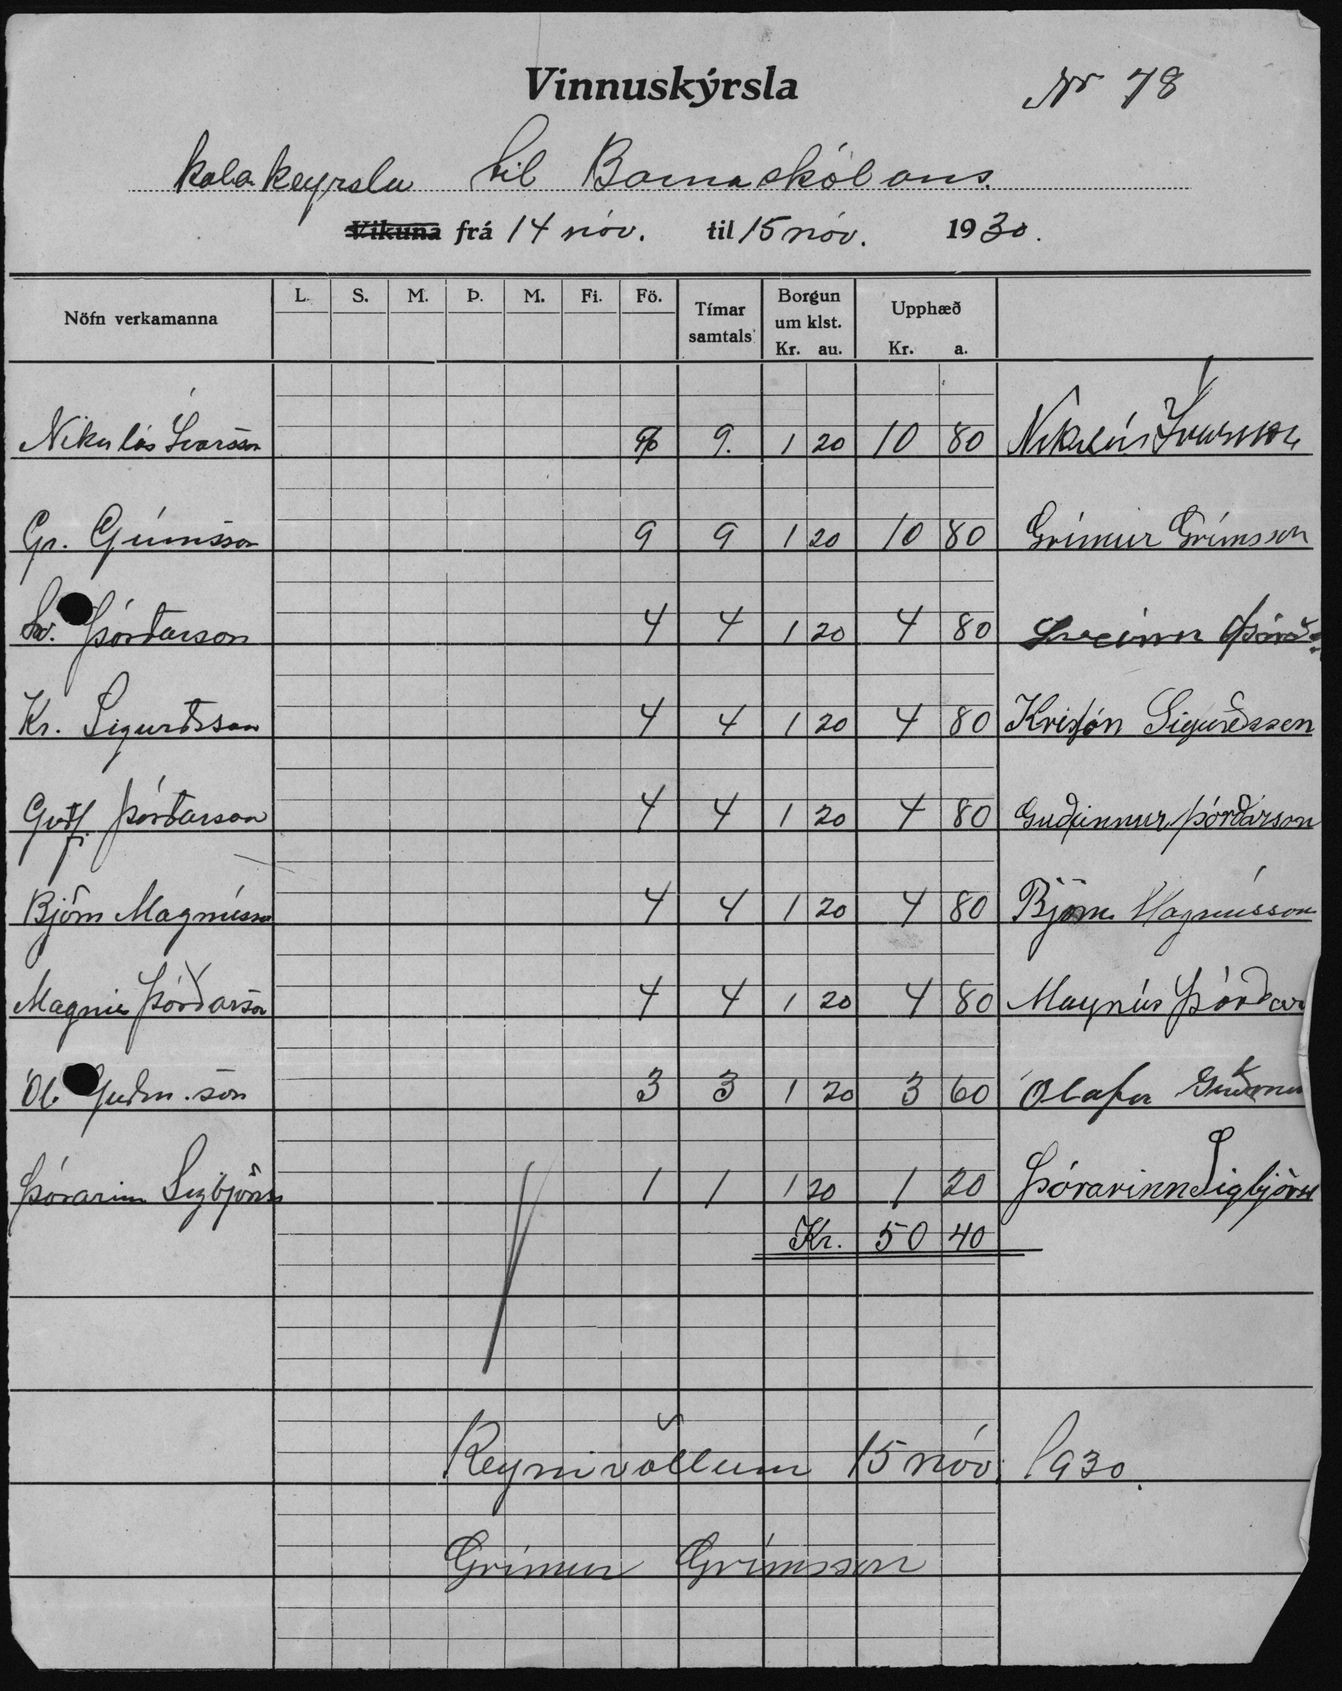 Vinnuskýrsla Nr 78
kolakeyrslu til Barnaskólans.
Vikuna frá 14 nóv. til 15 nóv. 1930.
Nöfn verkamanna L. S. M. Þ. M. Fi. Fö. Tímar samtals Borgun um klst. Kr. au. Upphæð Kr. a.
Nikulás Ívarsson 9 9. 1 20 10 80 Nikulás Ívarsson
Gr. Grímsson 9 9 1 20 10 80 Grímur Grímsson
Sv. Þórðarson 4 4 1 20 4 80 Sveinn Þórð
Kr. Sigurðsson 4 4 1 20 4 80 Kristjón Sigurðsson
Guðf. Þórðarson 4 4 1 20 4 80 Guðfinnur Þórðarson
Björn Magnússon 4 4 1 20 4 80 Björn Magnússon
Magnús Þórðarson 4 4 1 20 4 80 Magnús Þórðar
Ól. Guðm.son 3 3 1 20 3 60 Ólafur Guðmu
Þórarinn Sigbjörns 1 1 1 20 1 20 Þórarinn Sigbjörns
Kr. 50 40
Reynivöllum 15 nóv. 1930.
Grímur Grímsson